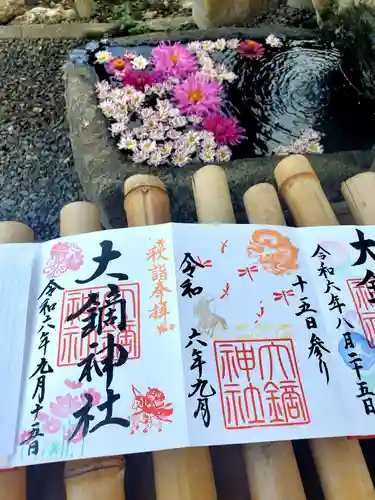 大鏑神社
秋詣奉拝
令和六年九月十五日
大鏑神社
令和六年九月
十五日参り
大鏑神社
令和六年八月二十五日
大